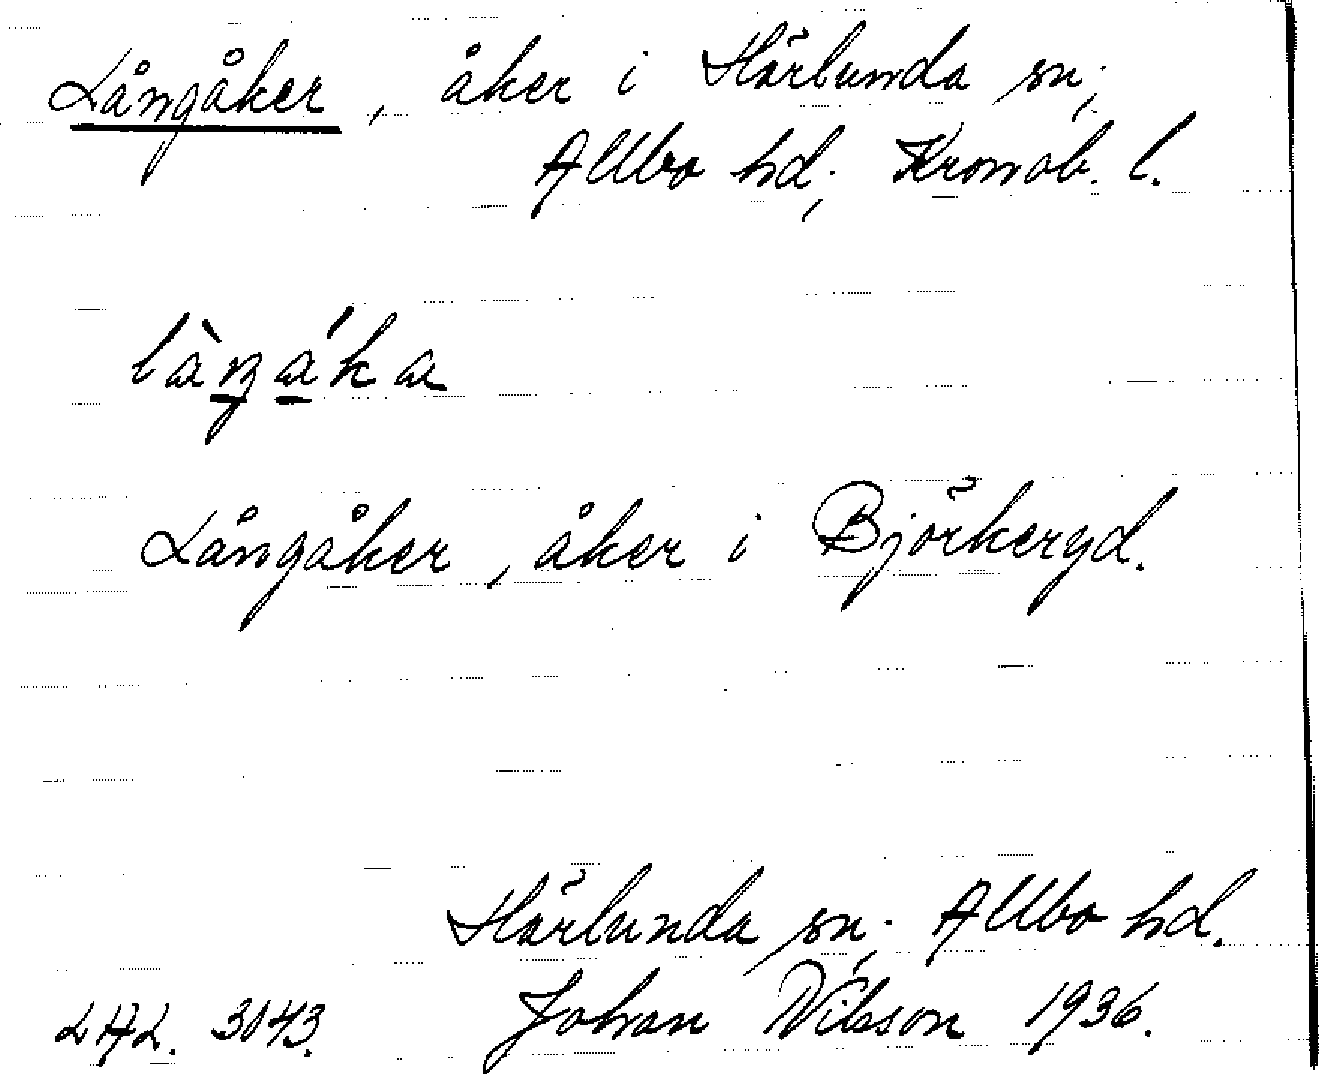 Långåker, åker i Härlunda sn;
Allbo hd; Kronob. l.
là̱ŋá̱ka
Långåker, åker i Björkeryd.
Härlunda sn; Allbo hd.
LAL. 3043. Johan Nilsson 1936.